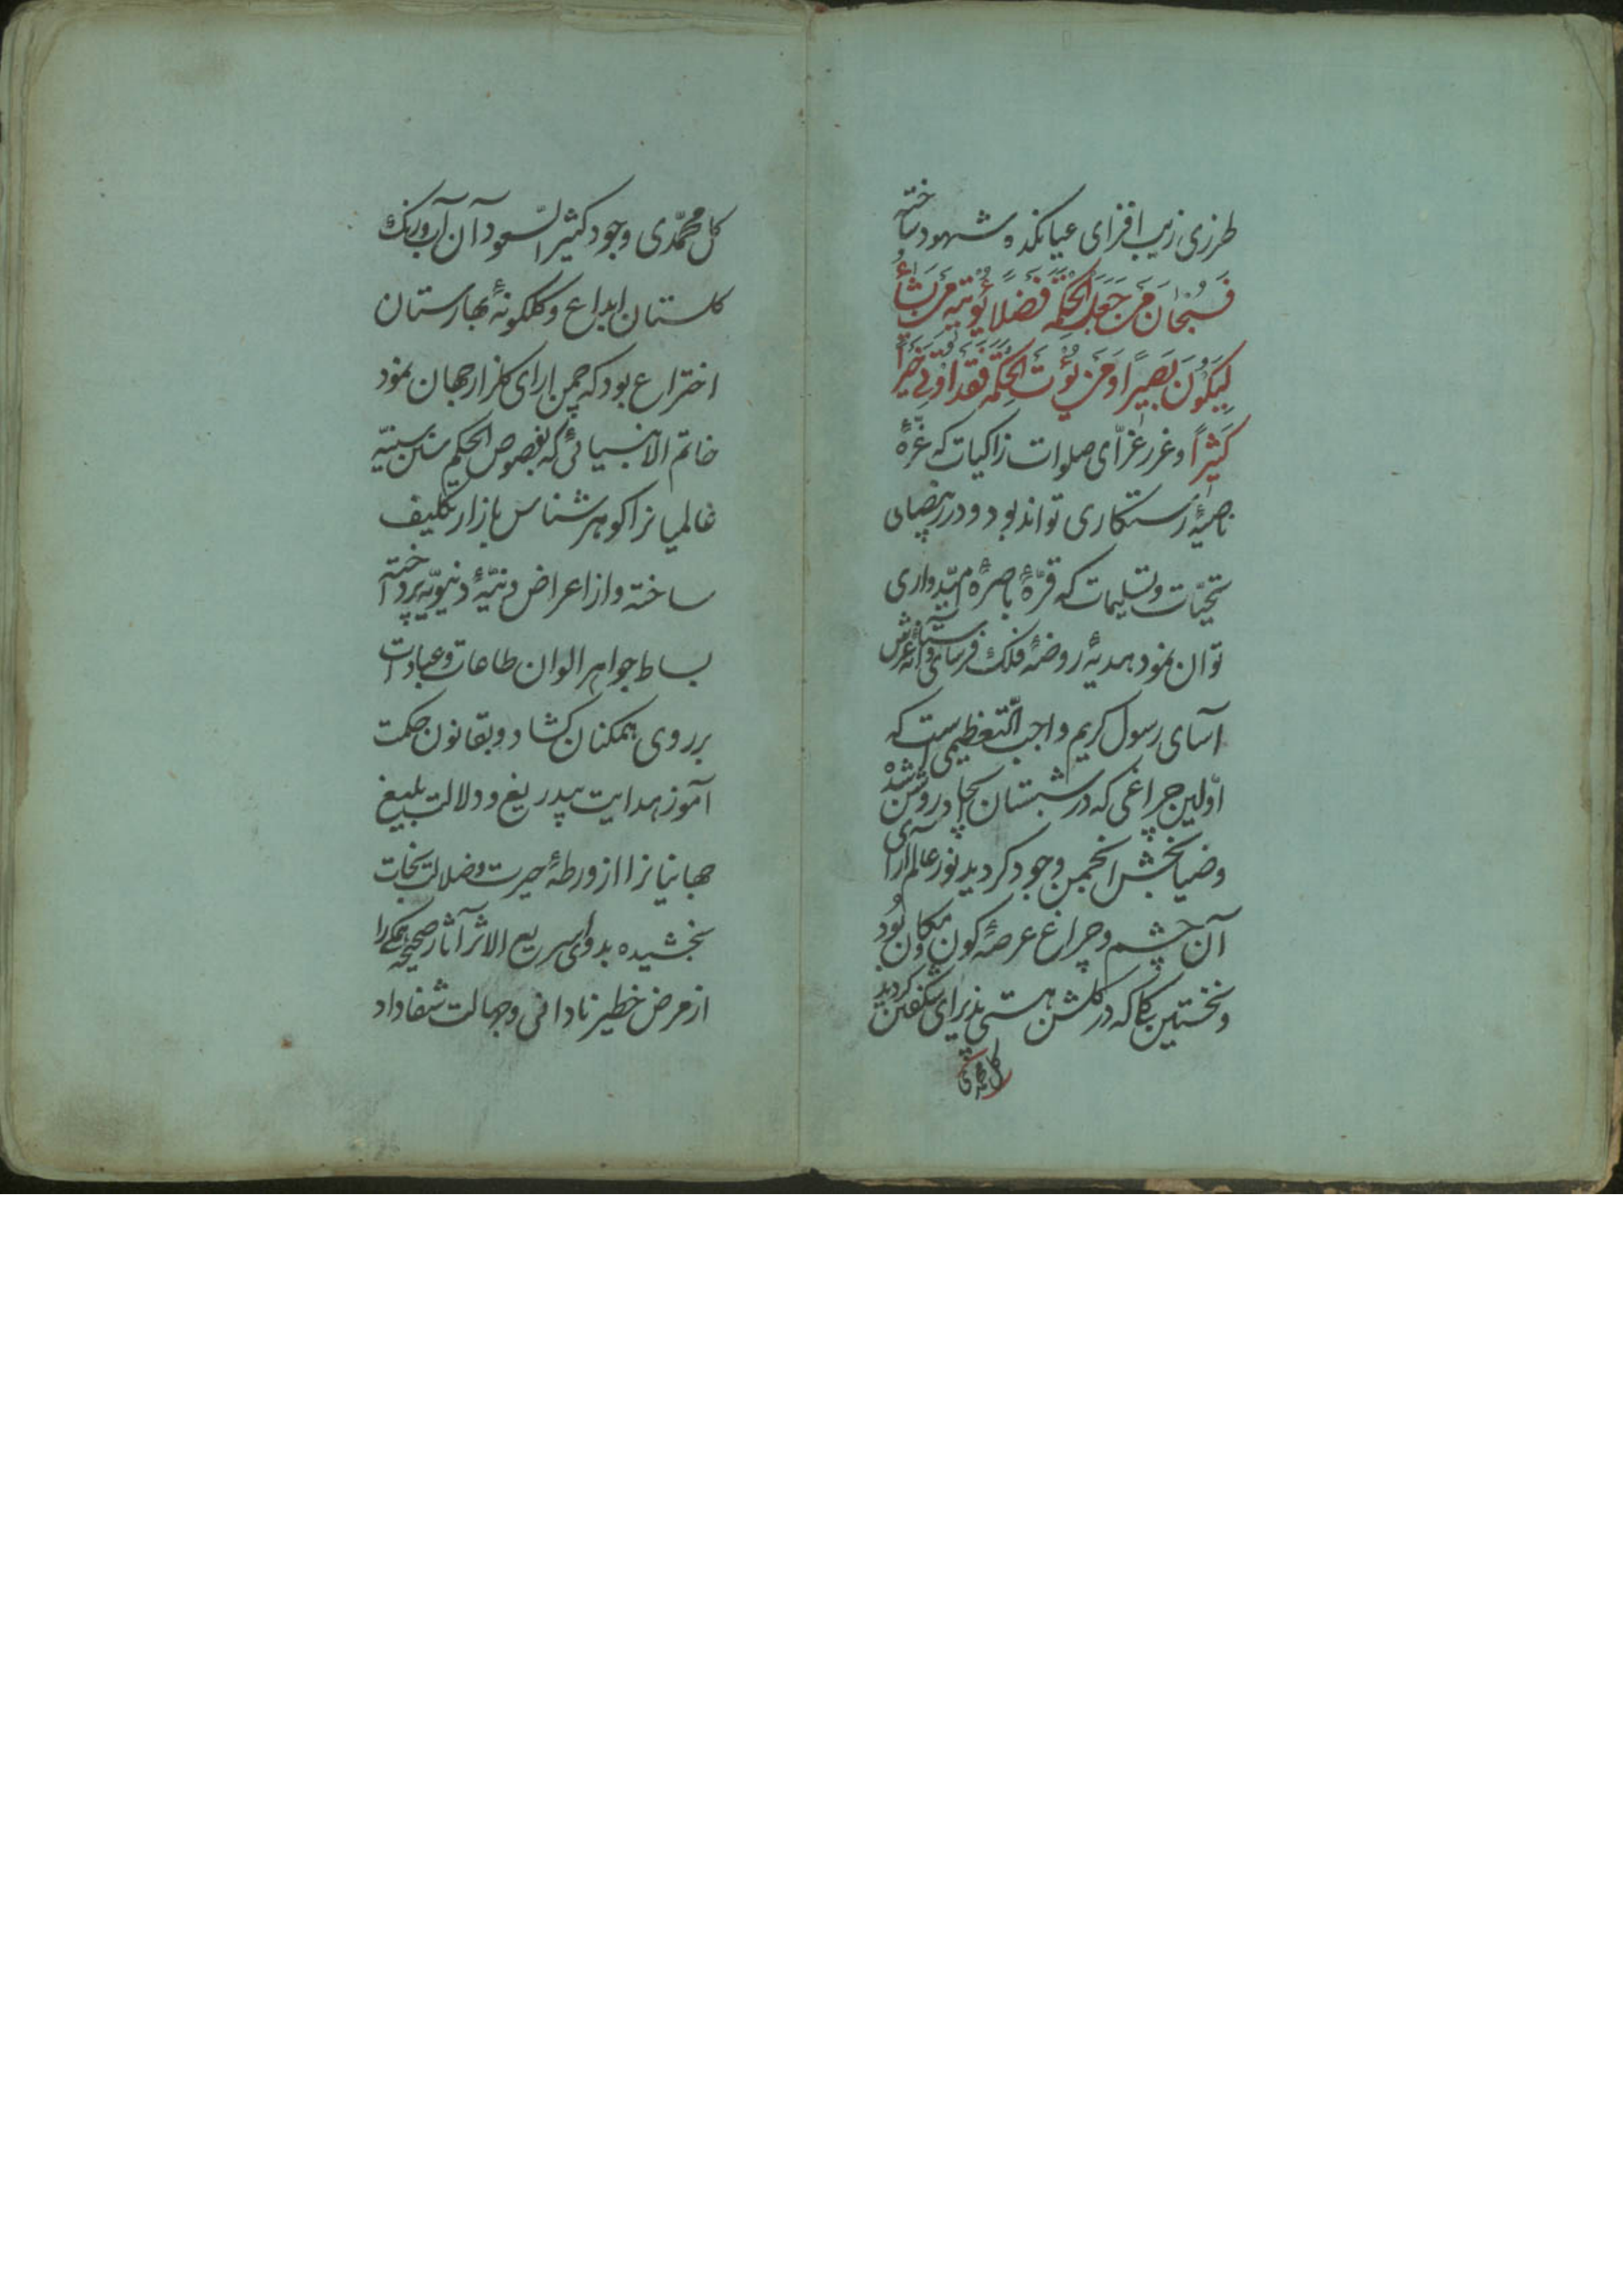 طرزی زیب افزای عیانکده شهود ساخته
فَسُبْحَانَ مَنْ جَعَلَ الحِکْمَةَ فَضْلاً یُؤْتیهِ مَنْ یَشَاءُ
لِیَکُونَ بَصِیراً وَمَنْ یُؤْتَ الحِکْمَةَ فَقَدْ اُوتِیَ خَیْراً
کَثِیراً و غرر غرّای صلوات زاکیات که غرّهٔ
ناصیهٔ رستکاری تواند بود و درر بیضای
تحیّات و تسلیمات که قرّهٔ باصرهٔ امیدواری
توان نمود هدیهٔ روضهٔ فلک فرسای و آستانهٔ عرش
آسای رسول کریم واجب التّعظیمی است که
اوّلین چراغی که در شبستان ایجاد روشن شده
و ضیابخش انجمن وجود کردید نور عالم آرای
آن چشم و چراغ عرصهٔ کون و مکان بُود
و نخستین کلی که در کلشن هستی پذیرای شکفتن کردید
کل محمدی
کل محمّدی وجود کثیر السّعود آن آب و رنک
کلستان ابداع و کلکونهٔ بهارستان
اختراع بود که چمن ارای کلزار جهان نمود
خاتم الانبیائی که بفصوص الحکم سنن سنیّه
عالمیانرا کوهرشناس بازار تکلیف
ساخته و از اعراض دنیّهٔ دنیویّه پرداخته
بساط جواهر الوان طاعات و عبادات
بر روی همکنان کشاد و بقانون حکمت
آموز هدایت بیدریغ و دلالت بلیغ
جهانیانرا از ورطهٔ حیرت و ضلالت نجات
بخشیده بدوای سریع الاثر آثار صحیحه همکی را
از مرض خطیر نادانی و جهالت شفا داد